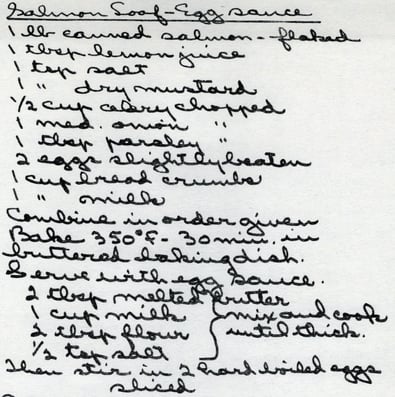 Salmon Loaf - Egg sauce
1 lb canned salmon - flaked
1 tbsp lemon juice
1 tsp salt
1 " dry mustard
1/2 cup celery chopped
1 med. onion "
1 tbsp parsley "
2 eggs slightly beaten
1 cup bread crumbs
1 " milk
Combine in order given
Bake 350°F - 30 min. in
buttered baking dish.
Serve with egg sauce.
2 tbsp melted butter
1 cup milk } mix and cook
2 tbsp flour until thick.
1/2 tsp salt
Then stir in 2 hard boiled eggs
sliced